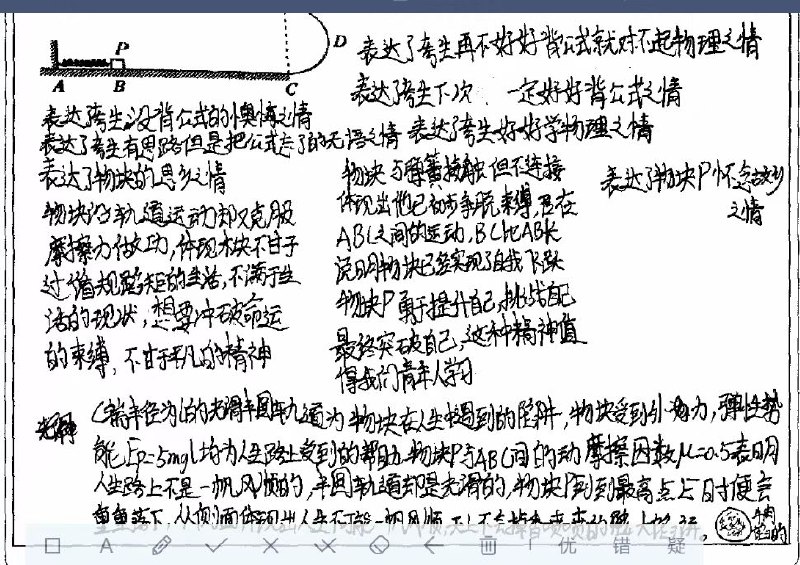 P
D
A B C
表达了考生再不好好背公式就对不起物理之情
表达了考生下次、一定好好背公式之情
表达考生没背公式的懊悔之情
表达了考生有思路但是把公式忘了的无语之情
表达了考生好好学物理之情
表达了物块的思乡之情
物块沿轨道运动却又克服
摩擦力做功,体现木块不甘于
过循规蹈矩的生活,不满于生
活的现状,想要冲破命运
的束缚,不甘平凡的精神
物块与弹簧接触但不连接
体现出他已初步争脱束缚,且在
ABC之间的运动,BC比AB长
说明物块已经实现了自我飞跃
物块P勇于提升自己,挑战自己
最终突破自己,这种精神值
得我们青年人学习
表达了物块P怀念故乡
之情
C端半径为l的光滑半圆轨道为物块在人生中遇到的陷阱,物块受到外力,弹性势
能Ep=5mgl均为人生路上受到的帮助.物块P与ABC间的动摩擦因数μ=0.5表明
人生路上不是一帆风顺的,半圆轨道却是光滑的,物块P到最高点上时便会
从侧面体现出人生不可能一帆风顺
优 错 疑